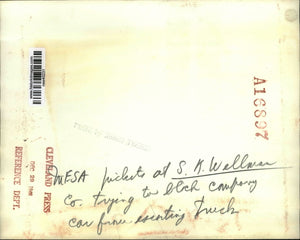 A16897
CLEVELAND PRESS
DEC 29
REFERENCE DEPT.
MESA pickets at S. K. Wellman
Co. trying to block company
car from escorting truck